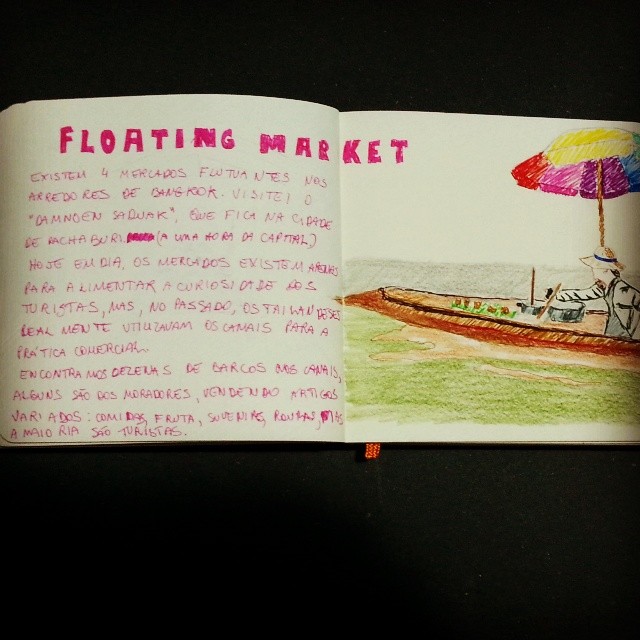 FLOATING MARKET
EXISTEM 4 MERCADOS FLUTUANTES NOS
ARREDORES DE BANGKOK. VISITEI O
"DAMNOEN SADUAK", QUE FICA NA CIDADE
DE RACHABURI. (A UMA HORA DA CAPITAL)
HOJE EM DIA, OS MERCADOS EXISTEM APENAS
PARA ALIMENTAR A CURIOSIDADE DOS
TURISTAS, MAS, NO PASSADO, OS TAILANDESES
REALMENTE UTILIZAVAM OS CANAIS PARA A
PRÁTICA COMERCIAL.
ENCONTRAMOS DEZENAS DE BARCOS NOS CANAIS,
ALGUNS SÃO DOS MORADORES, VENDENDO ARTIGOS
VARIADOS: COMIDAS, FRUTA, SUVENIRS, ROUPAS, MAS
A MAIORIA SÃO TURISTAS.